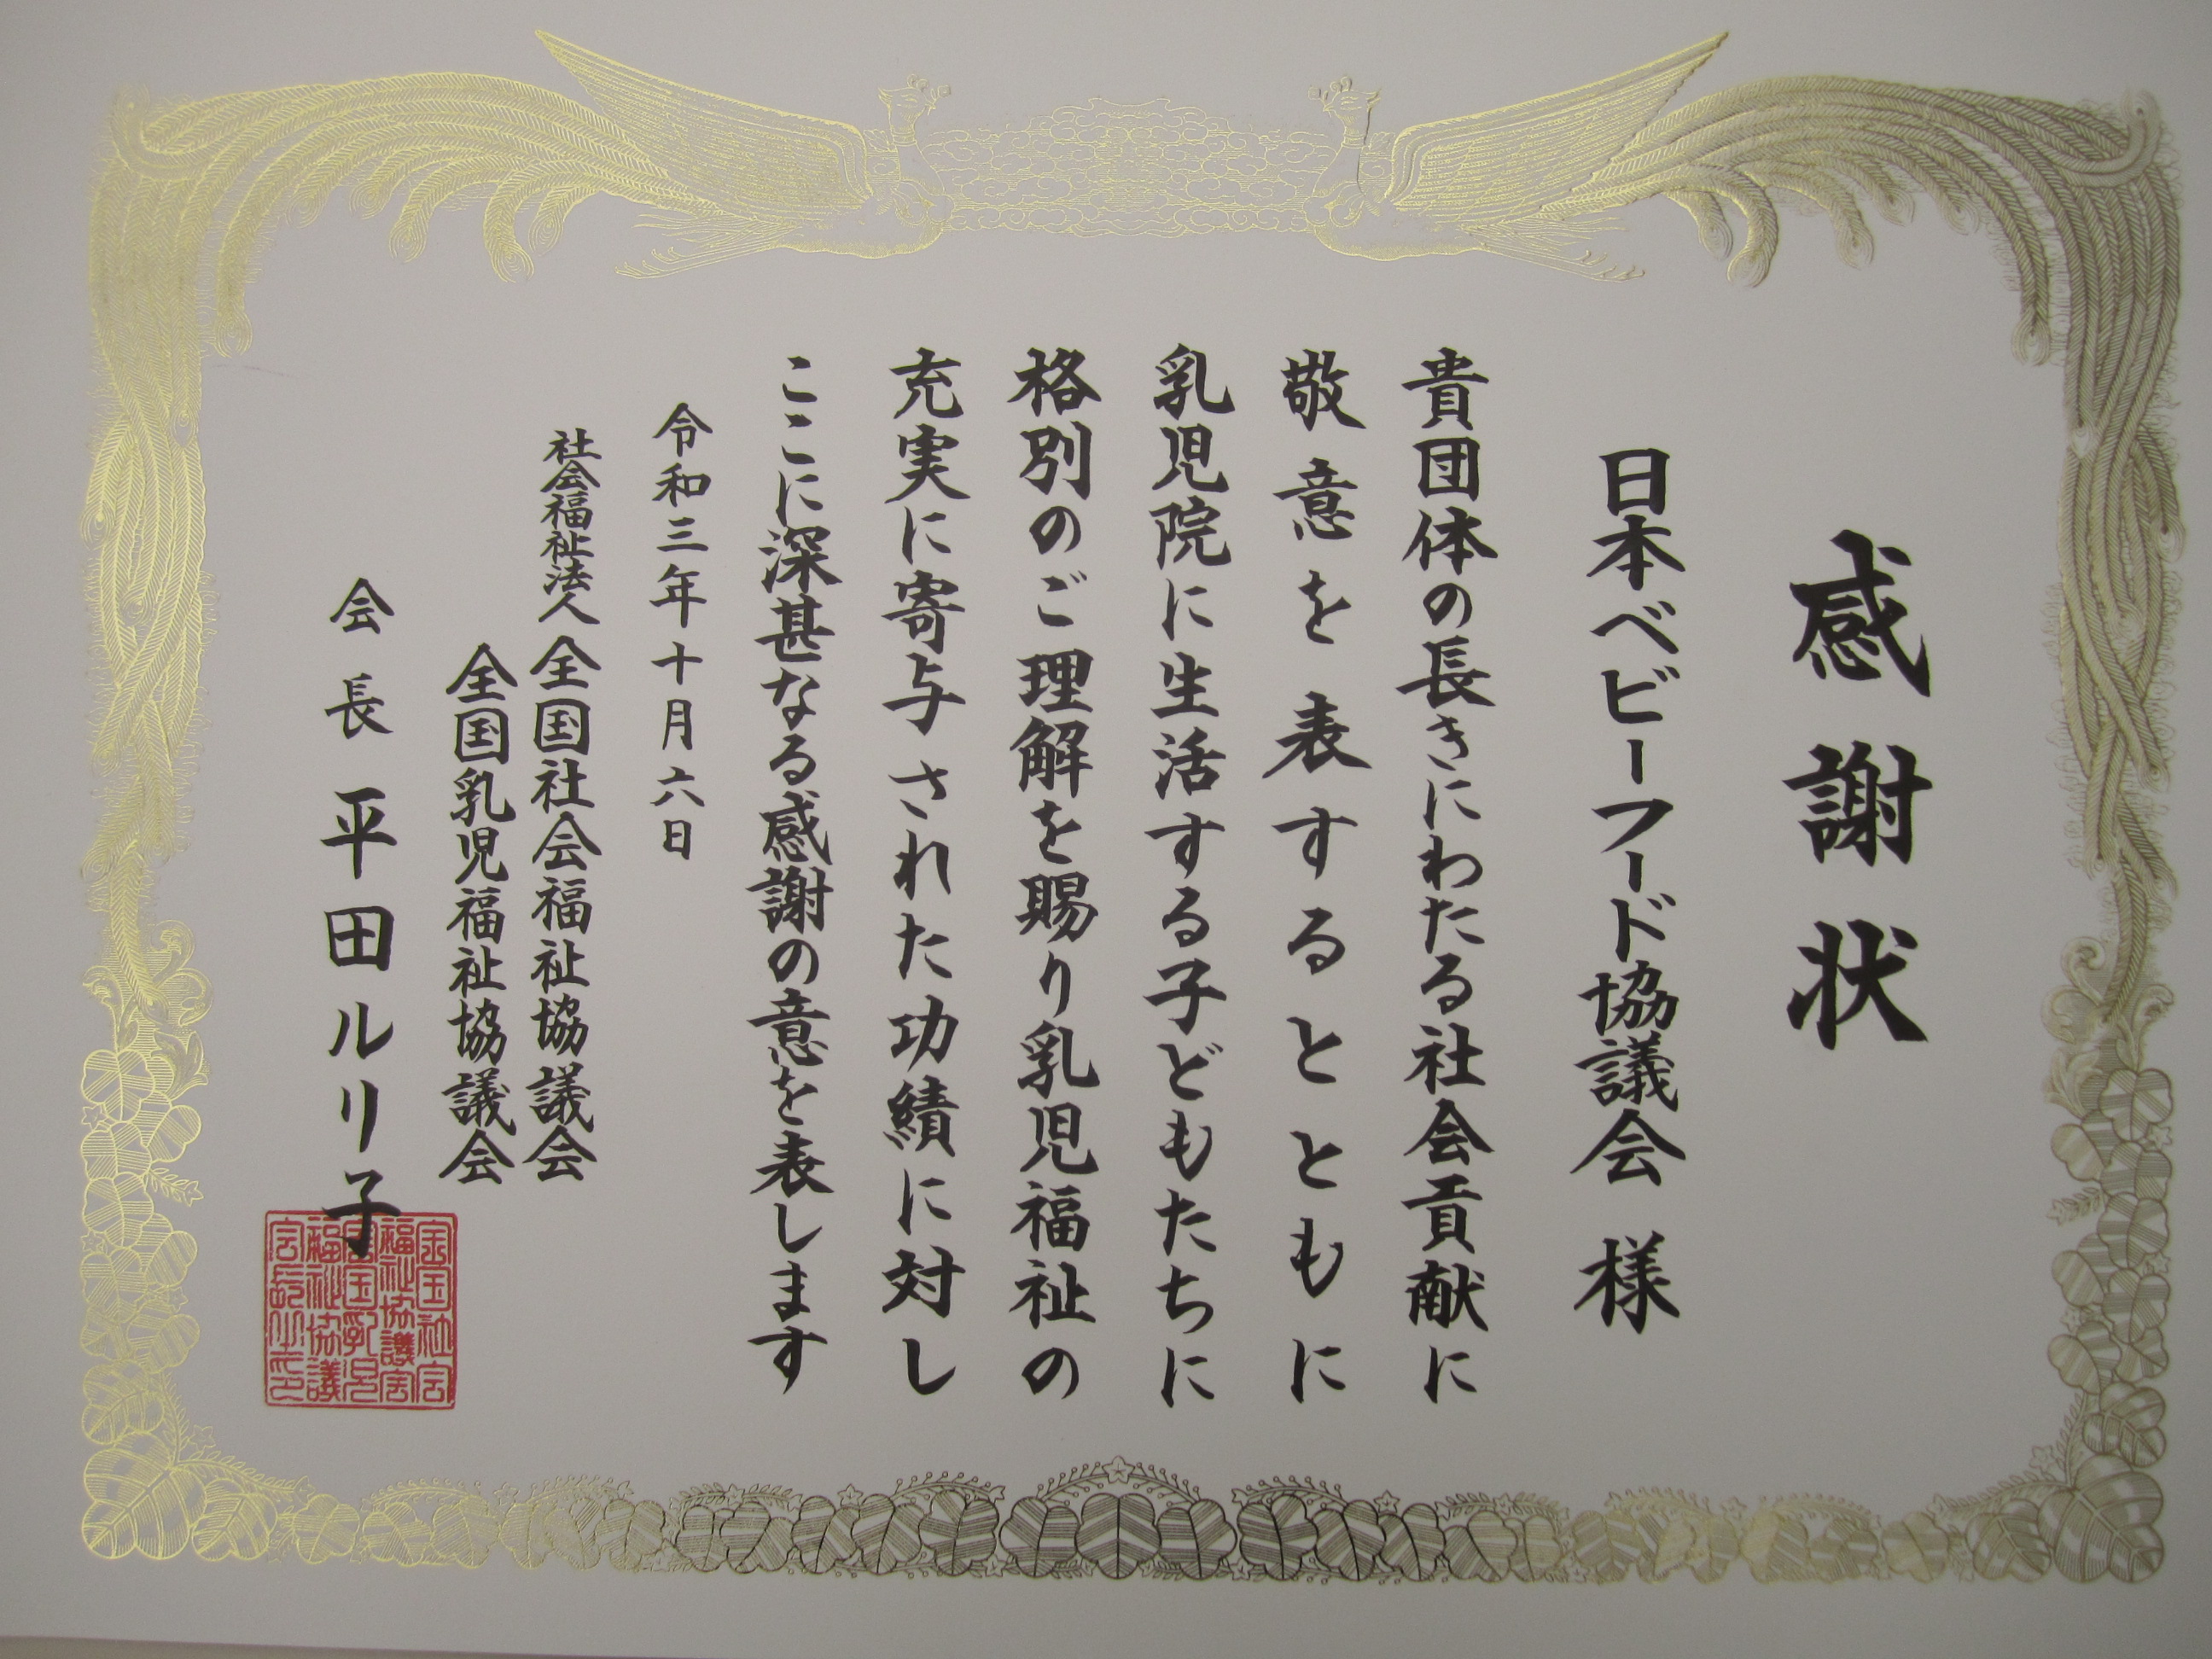 感謝状
日本ベビーフード協議会 様
貴団体の長きにわたる社会貢献に
敬意を表するとともに
乳児院に生活する子どもたちに
格別のご理解を賜り乳児福祉の
充実に寄与された功績に対し
ここに深甚なる感謝の意を表します
令和三年十月六日
社会福祉法人 全国社会福祉協議会
全国乳児福祉協議会
会長 平田ルリ子
全国社会
福祉協議会
全国乳児
福祉協議
会長之印